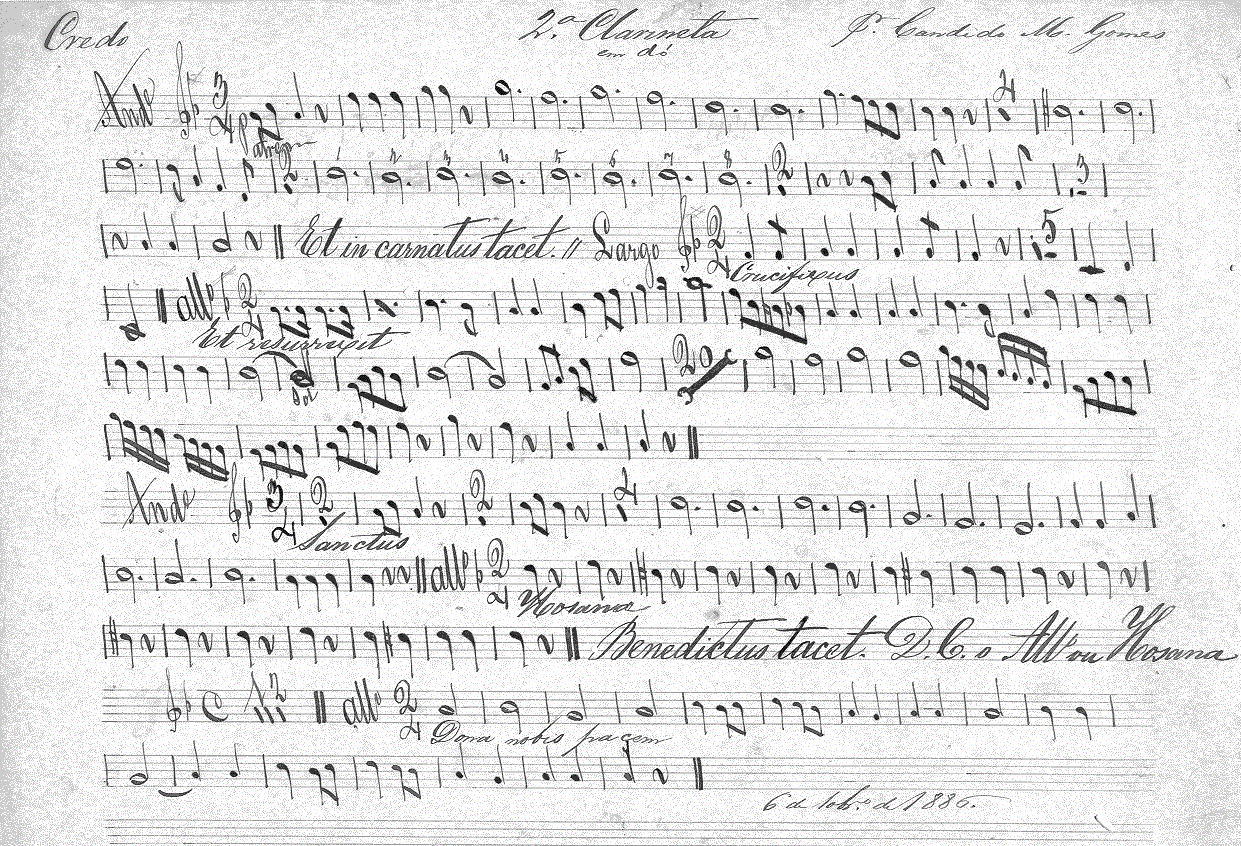 Credo 2.ª Clarineta P.r Candido M. Gomes
em dó
And.e 3 4 2
p
1 2 3 4 5 6 7 8 2 3
Et in carnatus tacet. // Largo 2 4 5
Crucifixus
all.o 2 4
Et resurrexit
20
sol
And.e 3 4 2 2 2
Sanctus
all.o 2 4
Hosanna
Benedictus tacet. D.C. o All.o ou Hosana
C 2 all.o 2 4
Dona nobis pacem
6 de de 1886.